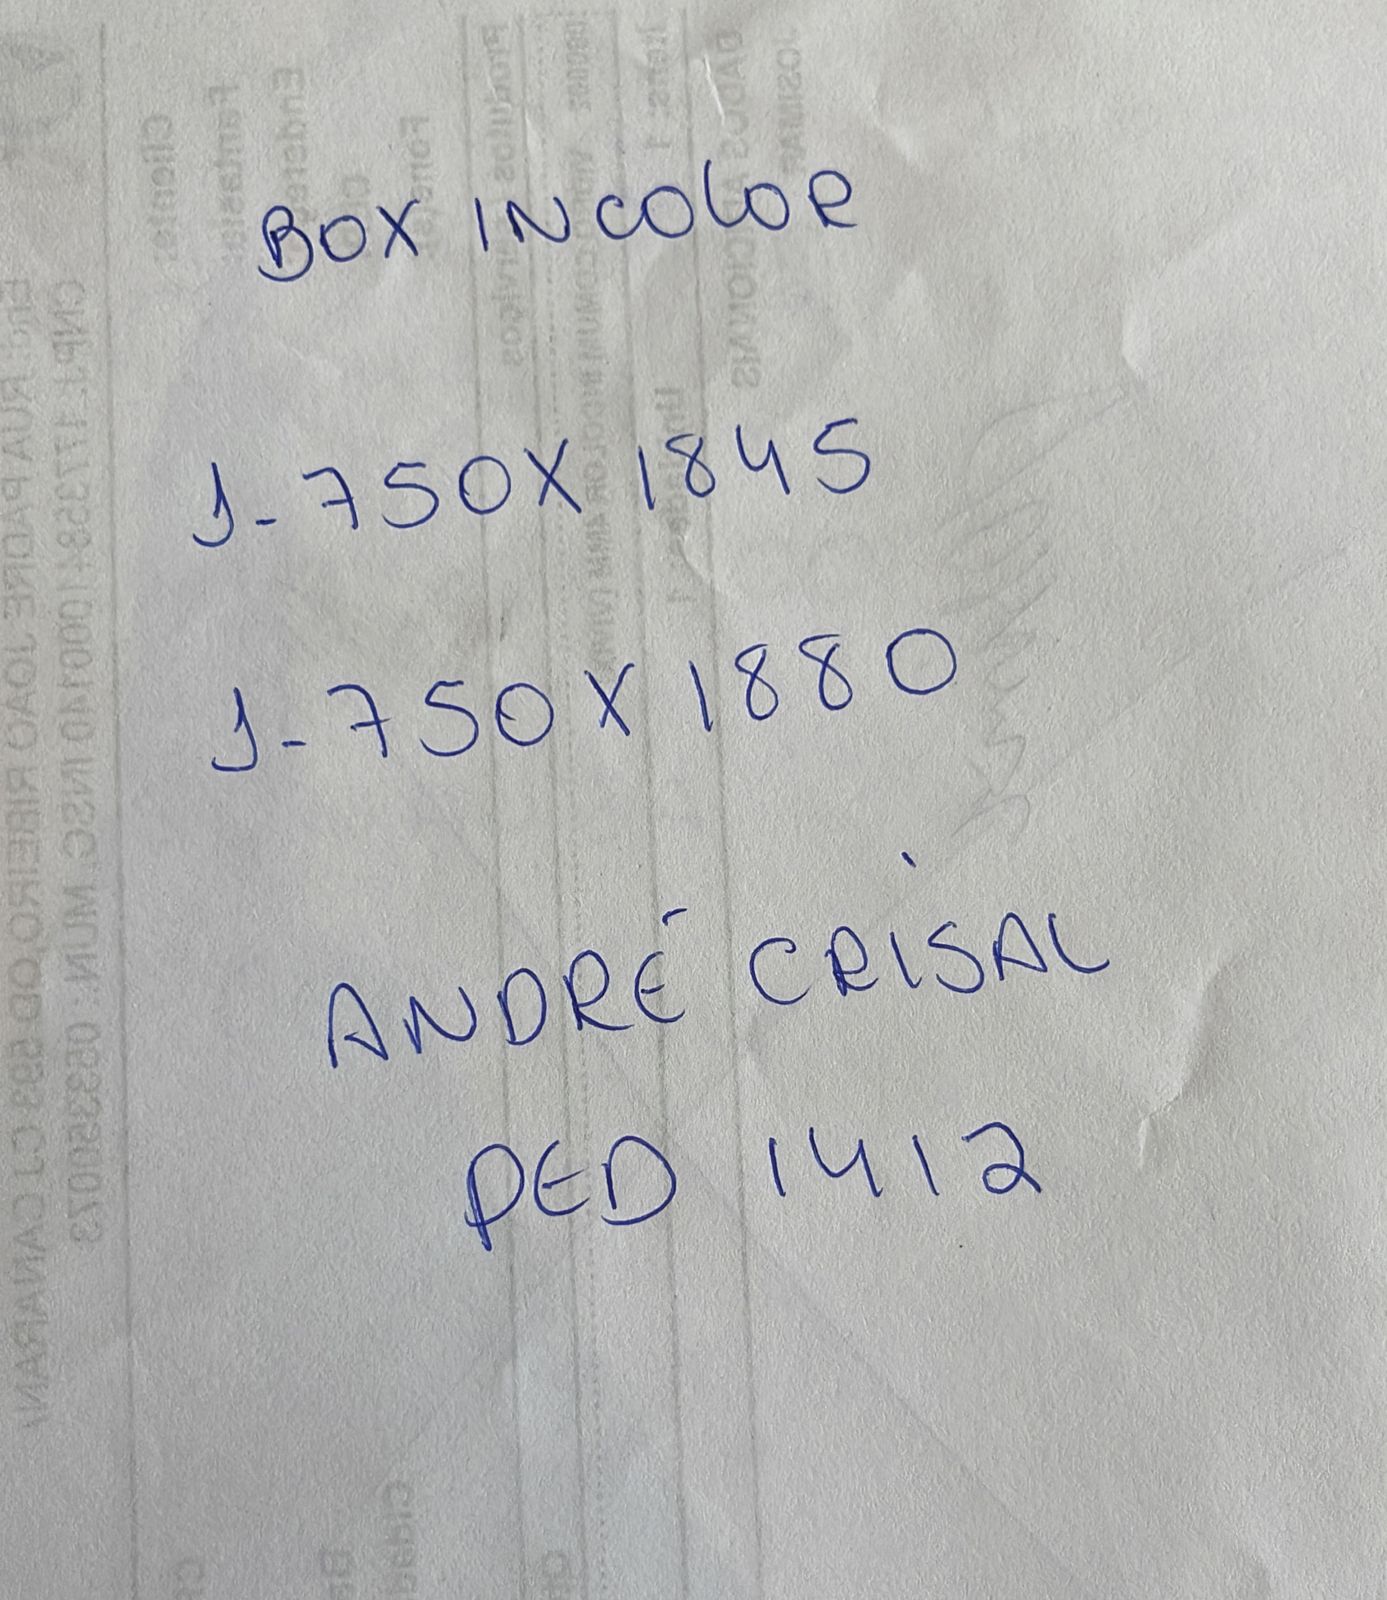 BOX INCOLOR
1-750X1845
1-750X1880
ANDRÉ CRISAL
PED 1412